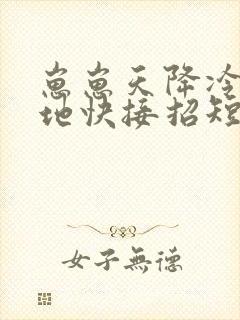 崽崽天降冷
地快接招短
女子無德